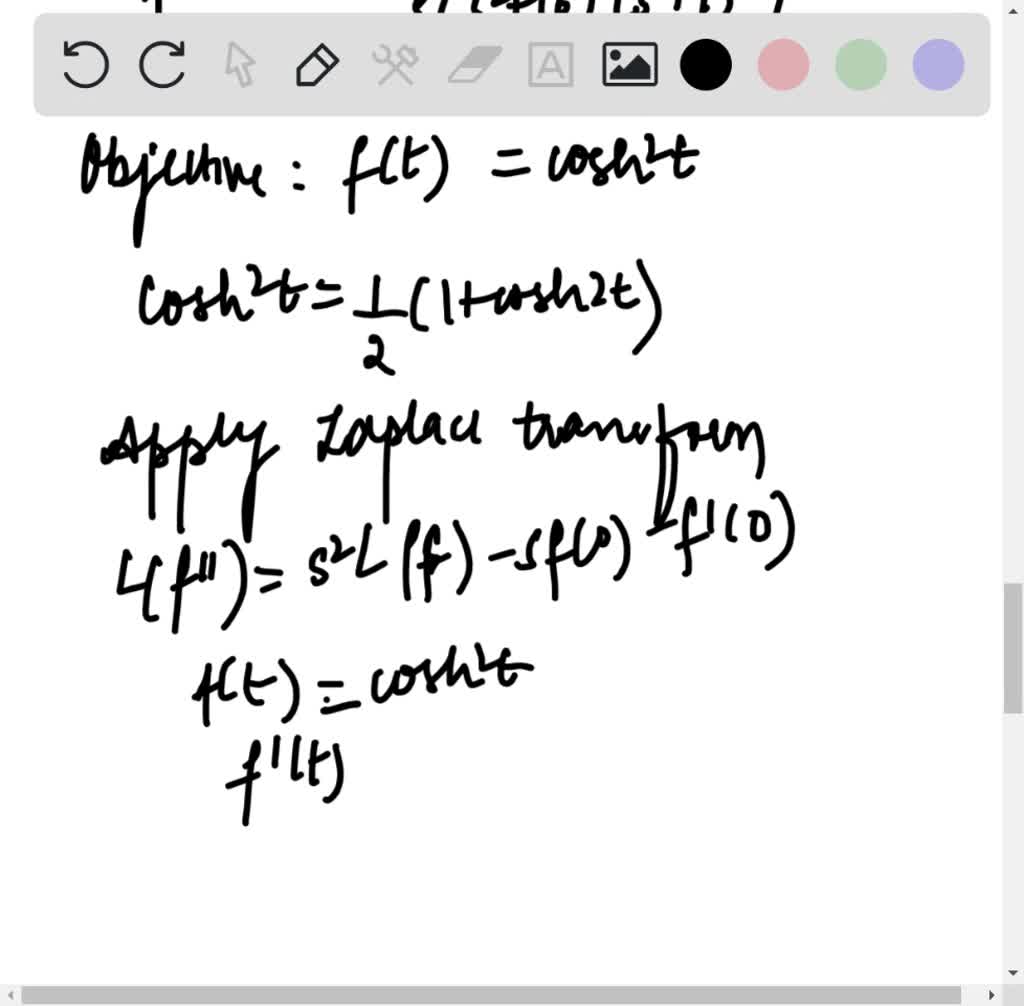 A
Objective : f(t) = cosh²t
cosh²t = 1/2 (1+cosh2t)
Apply Laplace transform
L(f'') = s²L(f) - sf(0) - f'(0)
f(t) = cosh²t
f'(t)